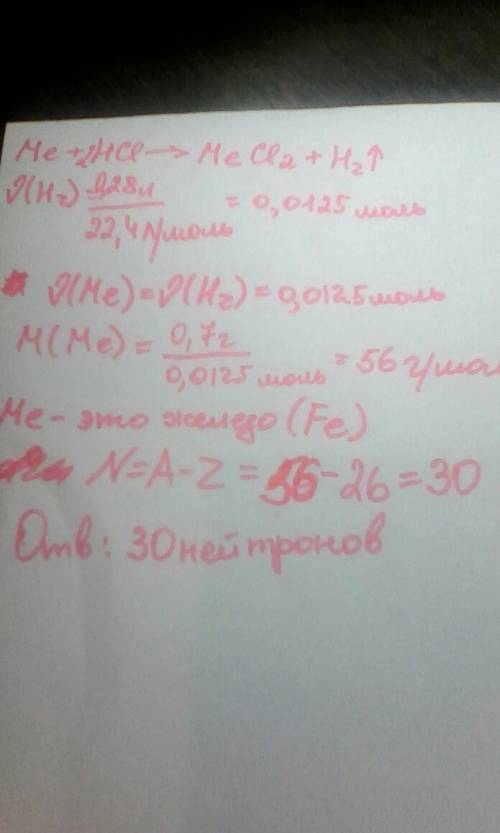 Me + 2HCl → MeCl2 + H2↑
ν(H2) 0,28л / 22,4л/моль = 0,0125 моль
ν(Me) = ν(H2) = 0,0125 моль
M(Me) = 0,7г / 0,0125 моль = 56 г/мол
Me - это железо (Fe)
N = A - Z = 56 - 26 = 30
Отв: 30 нейтронов